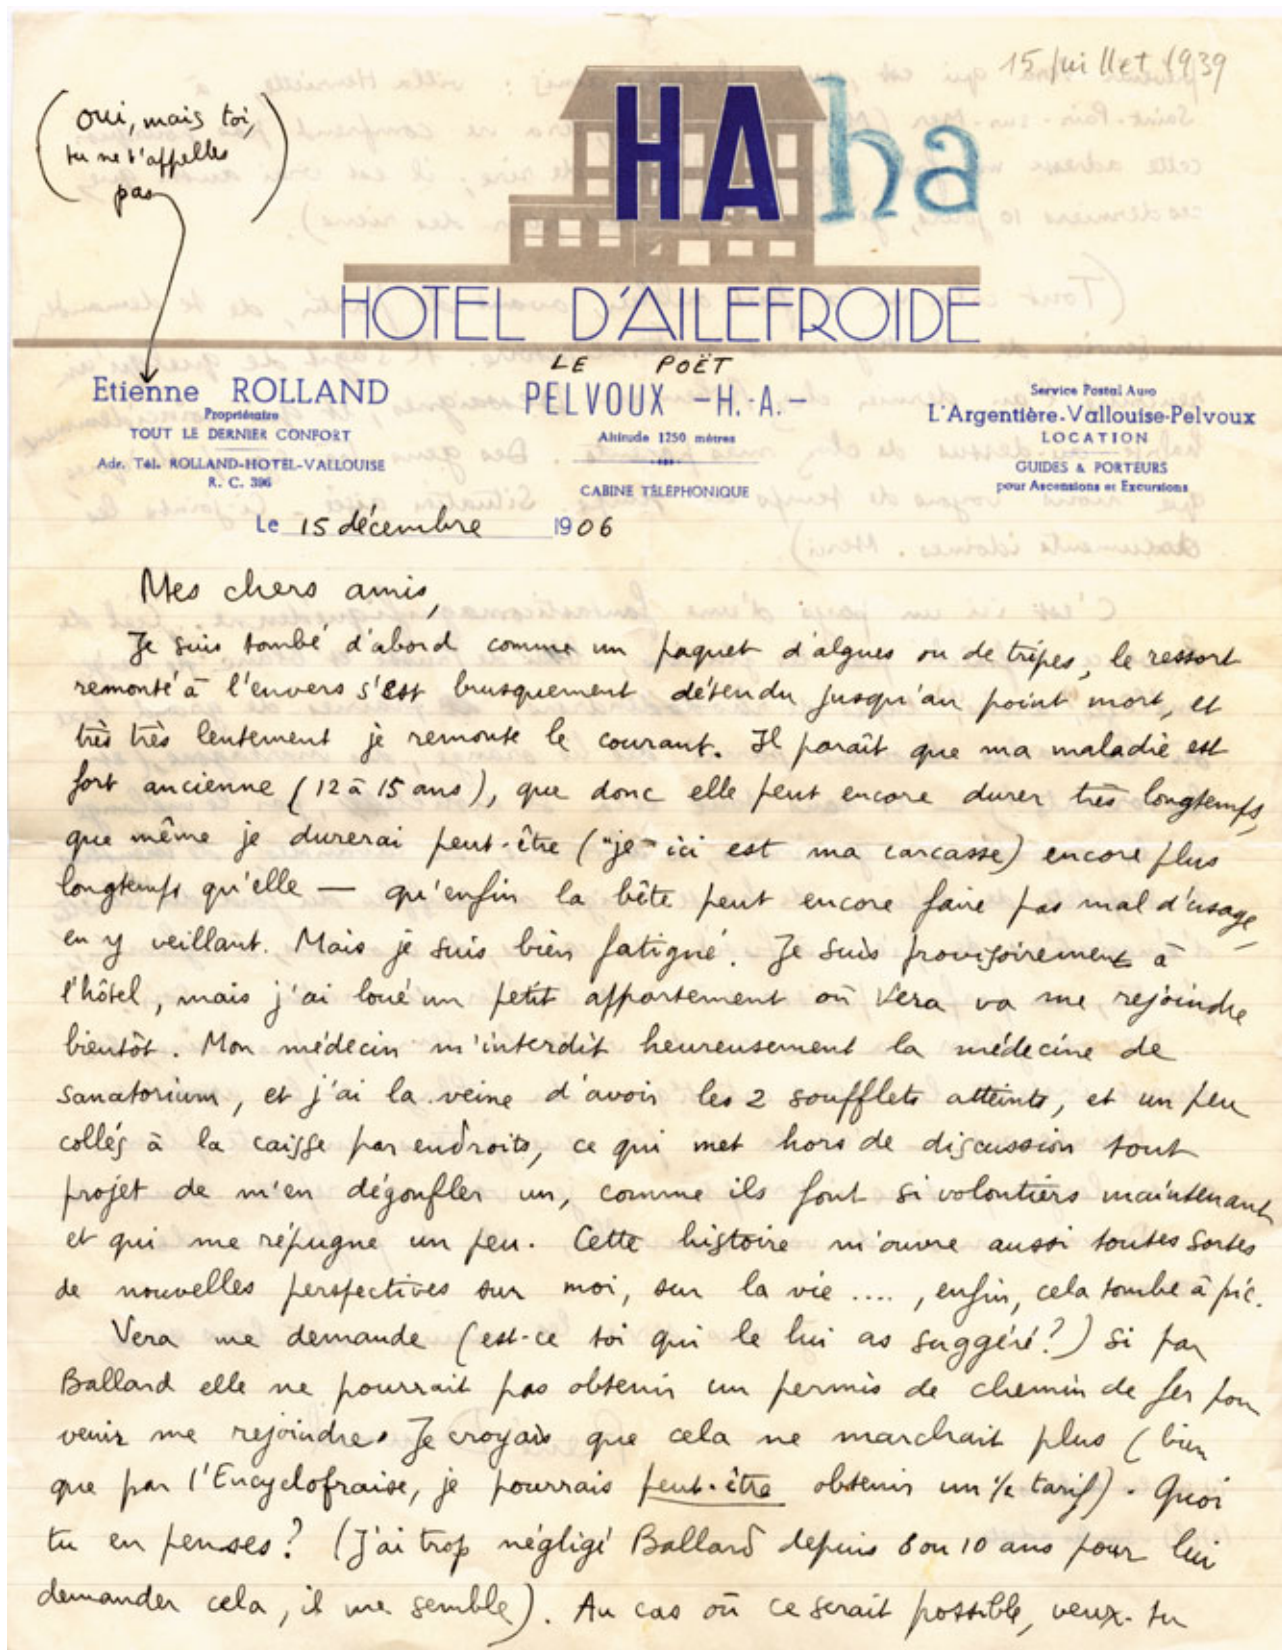 15 juillet 1939
(Oui, mais toi,
tu ne t'appelles
pas)
HA ha
HOTEL D'AILEFROIDE
LE POËT
Etienne ROLLAND
Propriétaire
TOUT LE DERNIER CONFORT
Adr. Tél. ROLLAND-HOTEL-VALLOUISE
R. C. 396
PELVOUX -H.-A.-
Altitude 1250 mètres
CABINE TÉLÉPHONIQUE
Service Postal Auto
L'Argentière-Vallouise-Pelvoux
LOCATION
GUIDES & PORTEURS
pour Ascensions et Excursions
Le 15 décembre 1906
Mes chers amis,
Je suis tombé d'abord comme un paquet d'algues ou de tripes, le ressort
remonté à l'envers s'est brusquement détendu jusqu'au point mort, et
très très lentement je remonte le courant. Il paraît que ma maladie est
fort ancienne (12 à 15 ans), que donc elle peut encore durer très longtemps,
que même je durerai peut-être ("je" ici est ma carcasse) encore plus
longtemps qu'elle — qu'enfin la bête peut encore faire pas mal d'usage,
en y veillant. Mais je suis bien fatigué. Je suis provisoirement à
l'hôtel, mais j'ai loué un petit appartement où Vera va me rejoindre
bientôt. Mon médecin m'interdit heureusement la médecine de
sanatorium, et j'ai la veine d'avoir les 2 soufflets atteints, et un peu
collés à la caisse par endroits, ce qui met hors de discussion tout
projet de m'en dégonfler un, comme ils font si volontiers maintenant
et qui me répugne un peu. Cette histoire m'ouvre aussi toutes sortes
de nouvelles perspectives sur moi, sur la vie ...., enfin, cela tombe à pic.
Vera me demande (est-ce toi qui le lui as suggéré?) si par
Ballard elle ne pourrait pas obtenir un permis de chemin de fer pour
venir me rejoindre. Je croyais que cela ne marchait plus (bien
que par l'Encyclofraise, je pourrais peut-être obtenir un ½ tarif). Quoi
tu en penses? (J'ai trop négligé Ballard depuis 8 ou 10 ans pour lui
demander cela, il me semble). Au cas où ce serait possible, veux-tu